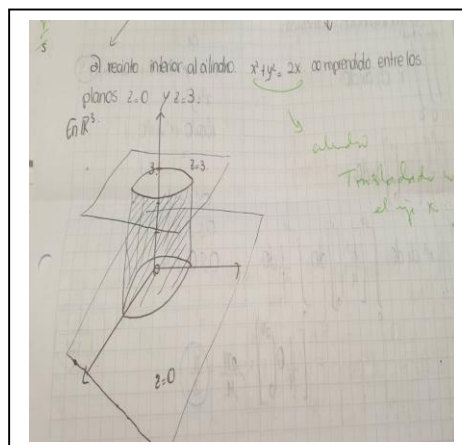 d) recinto interior al cilindro x²+y²=2x comprendido entre los
planos z=0 y z=3.
En R³.
cilindro
Trasladado
el eje x
3
z=3
z=0